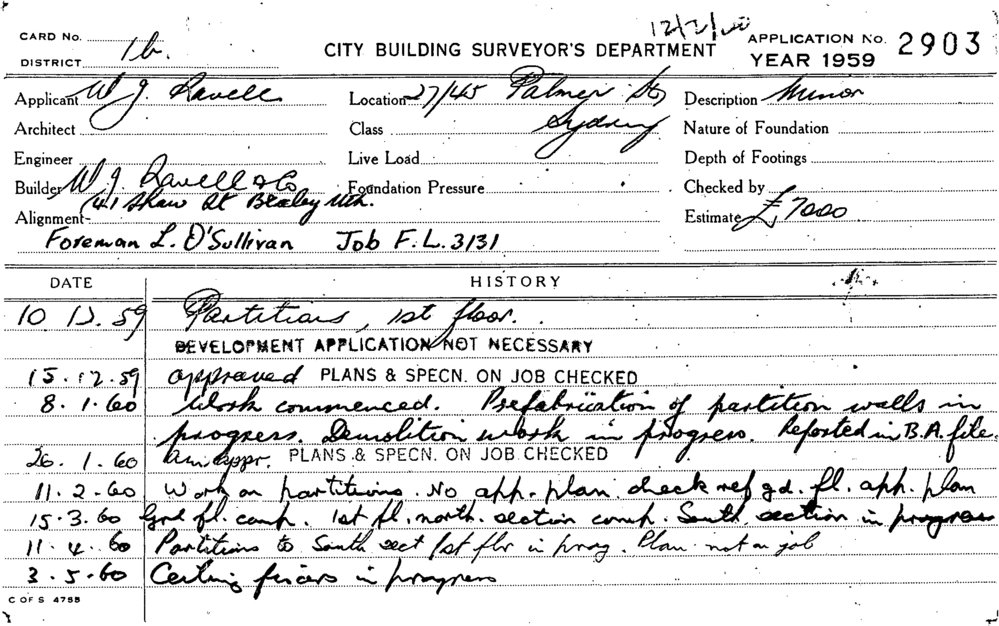 12/2/60
CARD No.
DISTRICT 1b.
CITY BUILDING SURVEYOR'S DEPARTMENT
APPLICATION No. 2903
YEAR 1959
Applicant W J. Ravell Location 27/45 Palmer St, Description Minor
Architect Class Sydney Nature of Foundation
Engineer Live Load Depth of Footings
Builder W. J. Ravell & Co Foundation Pressure Checked by
(41 Shaw St Bexley Nth. Estimate £7000
Alignment
Foreman L. O'Sullivan Job F.L. 3131
DATE HISTORY
10 12. 59 Partitions, 1st floor.
DEVELOPMENT APPLICATION NOT NECESSARY
15.12.59 approved PLANS & SPECN. ON JOB CHECKED
8.1.60 Work commenced. Prefabrication of partition walls in
progress. Demolition work in progress. Reported in B.A. file.
26.1.60 appr. PLANS & SPECN. ON JOB CHECKED
11.2.60 Work on partitions. No app. plan. check ref gd. fl. app. plan
15.3.60 Grd fl. comp. 1st fl. north. section comp. South section in progress
11.4.60 Partitions to South sect 1st flr in prog. Plan not on job
3.5.60 Ceiling fixers in progress
C OF S 4755